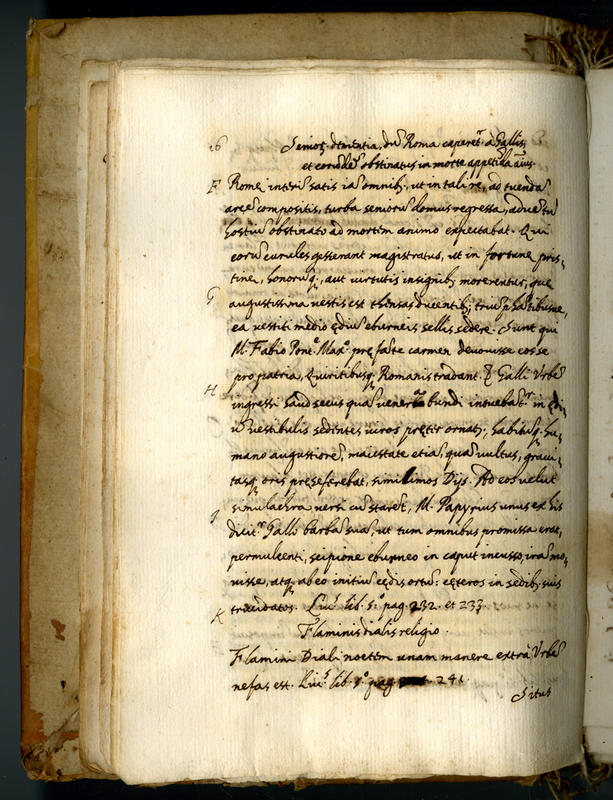 26 Senior̃. dementia, dũ Roma caperet.r à Gallis,
et eorũdẽ obstinatus in mortẽ appetẽda aĩus.
F Rome interĩ satis iã omnib; ut in tali re, ad tuendã
arcẽ compositis, turba seniorũ domus regressa, aduẽtũ
hostiũ obstinato ad mortem animo expectabat. Qui
eorũ curules gesserant magistratus, ut in fortune pris,
tine, honorũq;, aut virtutis insignib; morerentur, que
G augustissima vestis est thẽsas ducentib; triũphãtibusue,
ea vestiti medio ędiũ eburneis sellis sedere. Sunt qui
M. Fabio Pont.e Max.o prę fãte carmen deuouisse eos se
pro patria, Quiritibusq; Romanis tradant. Galli Vrbẽ
H ingressi haud secus quã venerabundi intuebãt.r in ędi,
ũ vestibulis sedentes viros prętér ornatũ, habitũq; hu,
mano augustiorẽ, maiestate etiã, quã vultus, graui,
tasq; oris preseferebat, simillimos Dijs. Ad eos velut
simulachra versi cũ starẽt, M. Papyrius unus ex his
I dicit.r Gallo barbã suã, ut tum omnibus promissa erat,
permulcenti, scipione eburneo in caput incusso, irã mo,
uisse, atq; ab eo initiũ cędis ortũ: cęteros in sedib; suis
trucidatos. Liu.s lib. 5.o pag. 232. et 233.
K Flaminis dialis religio.
Flamini Diali noctem unam manere extrà Vrbẽ
nefas est. Liu.s lib. 5.o pag. 241
Situs